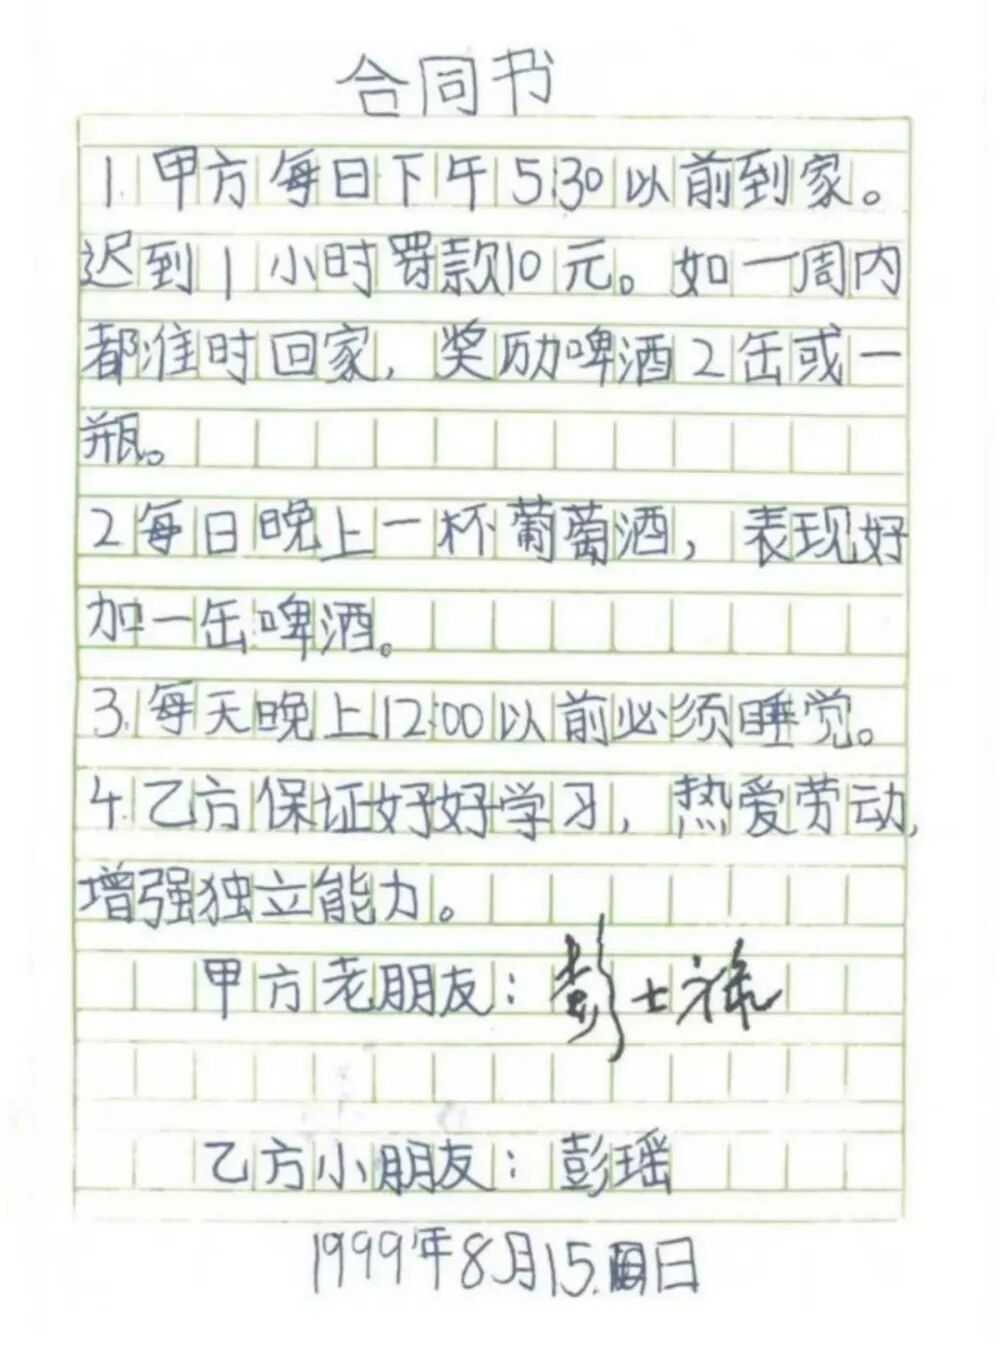 合同书
1.甲方每日下午5:30以前到家。
迟到1小时罚款10元。如一周内
都准时回家,奖励啤酒2缶或一
瓶。
2每日晚上一杯葡萄酒,表现好
加一缶啤酒。
3.每天晚上12:00以前必须睡觉。
4.乙方保证好好学习,热爱劳动,
增强独立能力。
甲方老朋友:彭士禄
乙方小朋友:彭瑶
1999年8月15日